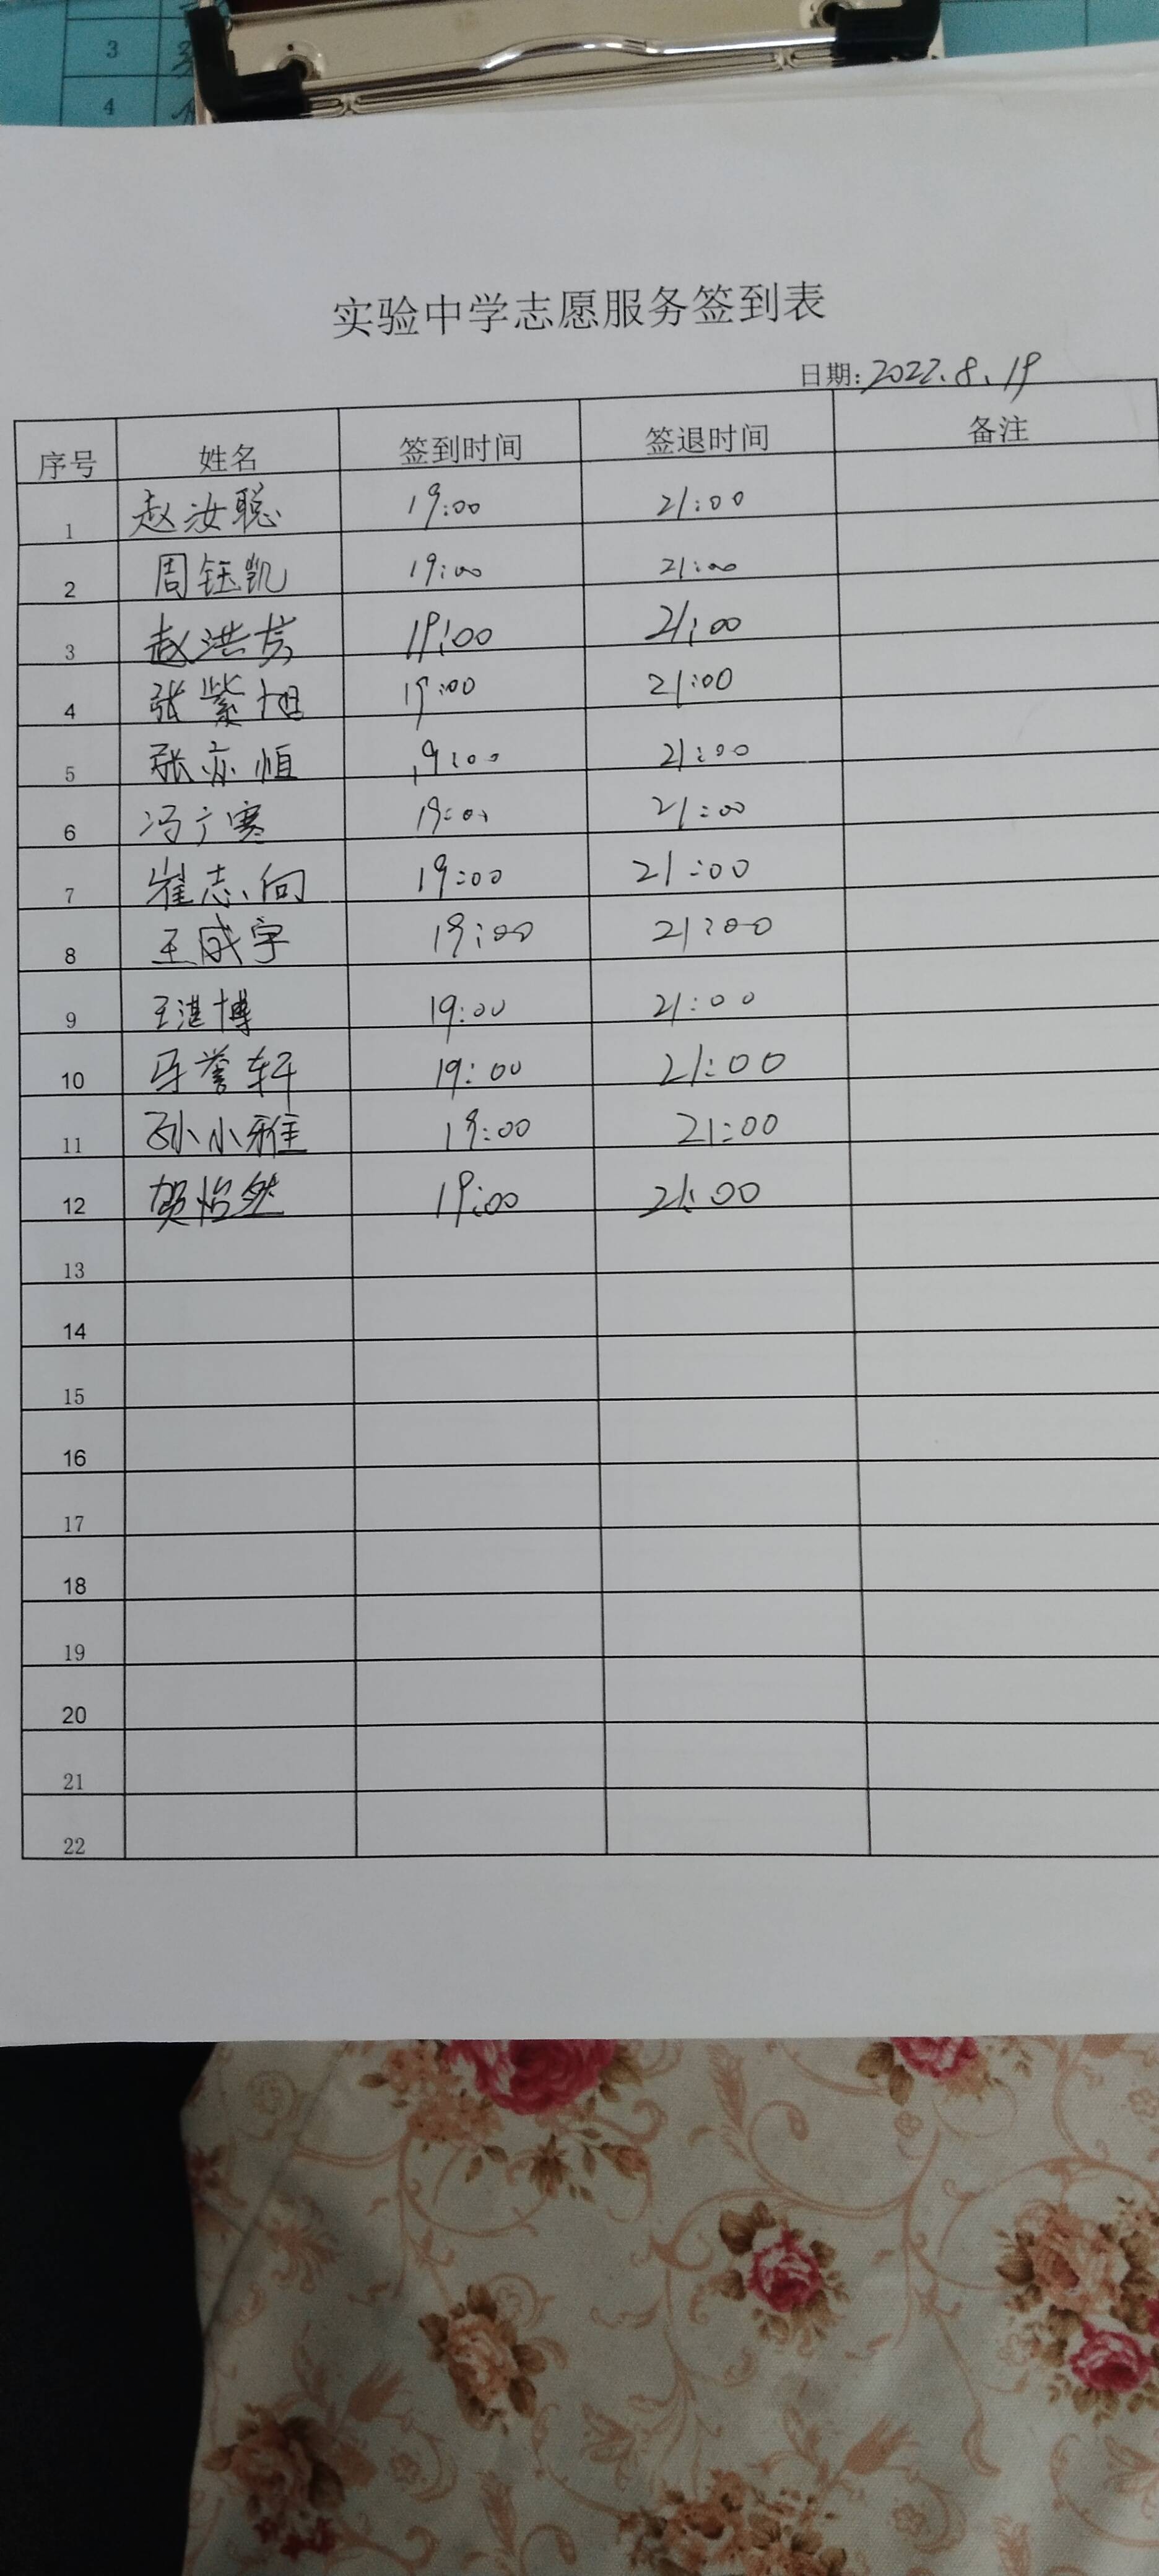 3
4
实验中学志愿服务签到表
日期: 2022.8.19
序号 姓名 签到时间 签退时间 备注
1 赵汝聪 19:00 21:00
2 周钰凯 19:00 21:00
3 赵洪 19:00 21:00
4 张紫旭 19:00 21:00
5 张亦恒 19:00 21:00
6 冯广寒 19:00 21:00
7 崔志向 19:00 21:00
8 王成宇 19:00 21:00
9 王湛博 19:00 21:00
10 马誉轩 19:00 21:00
11 孙小雅 19:00 21:00
12 贺怡然 19:00 21:00
13
14
15
16
17
18
19
20
21
22